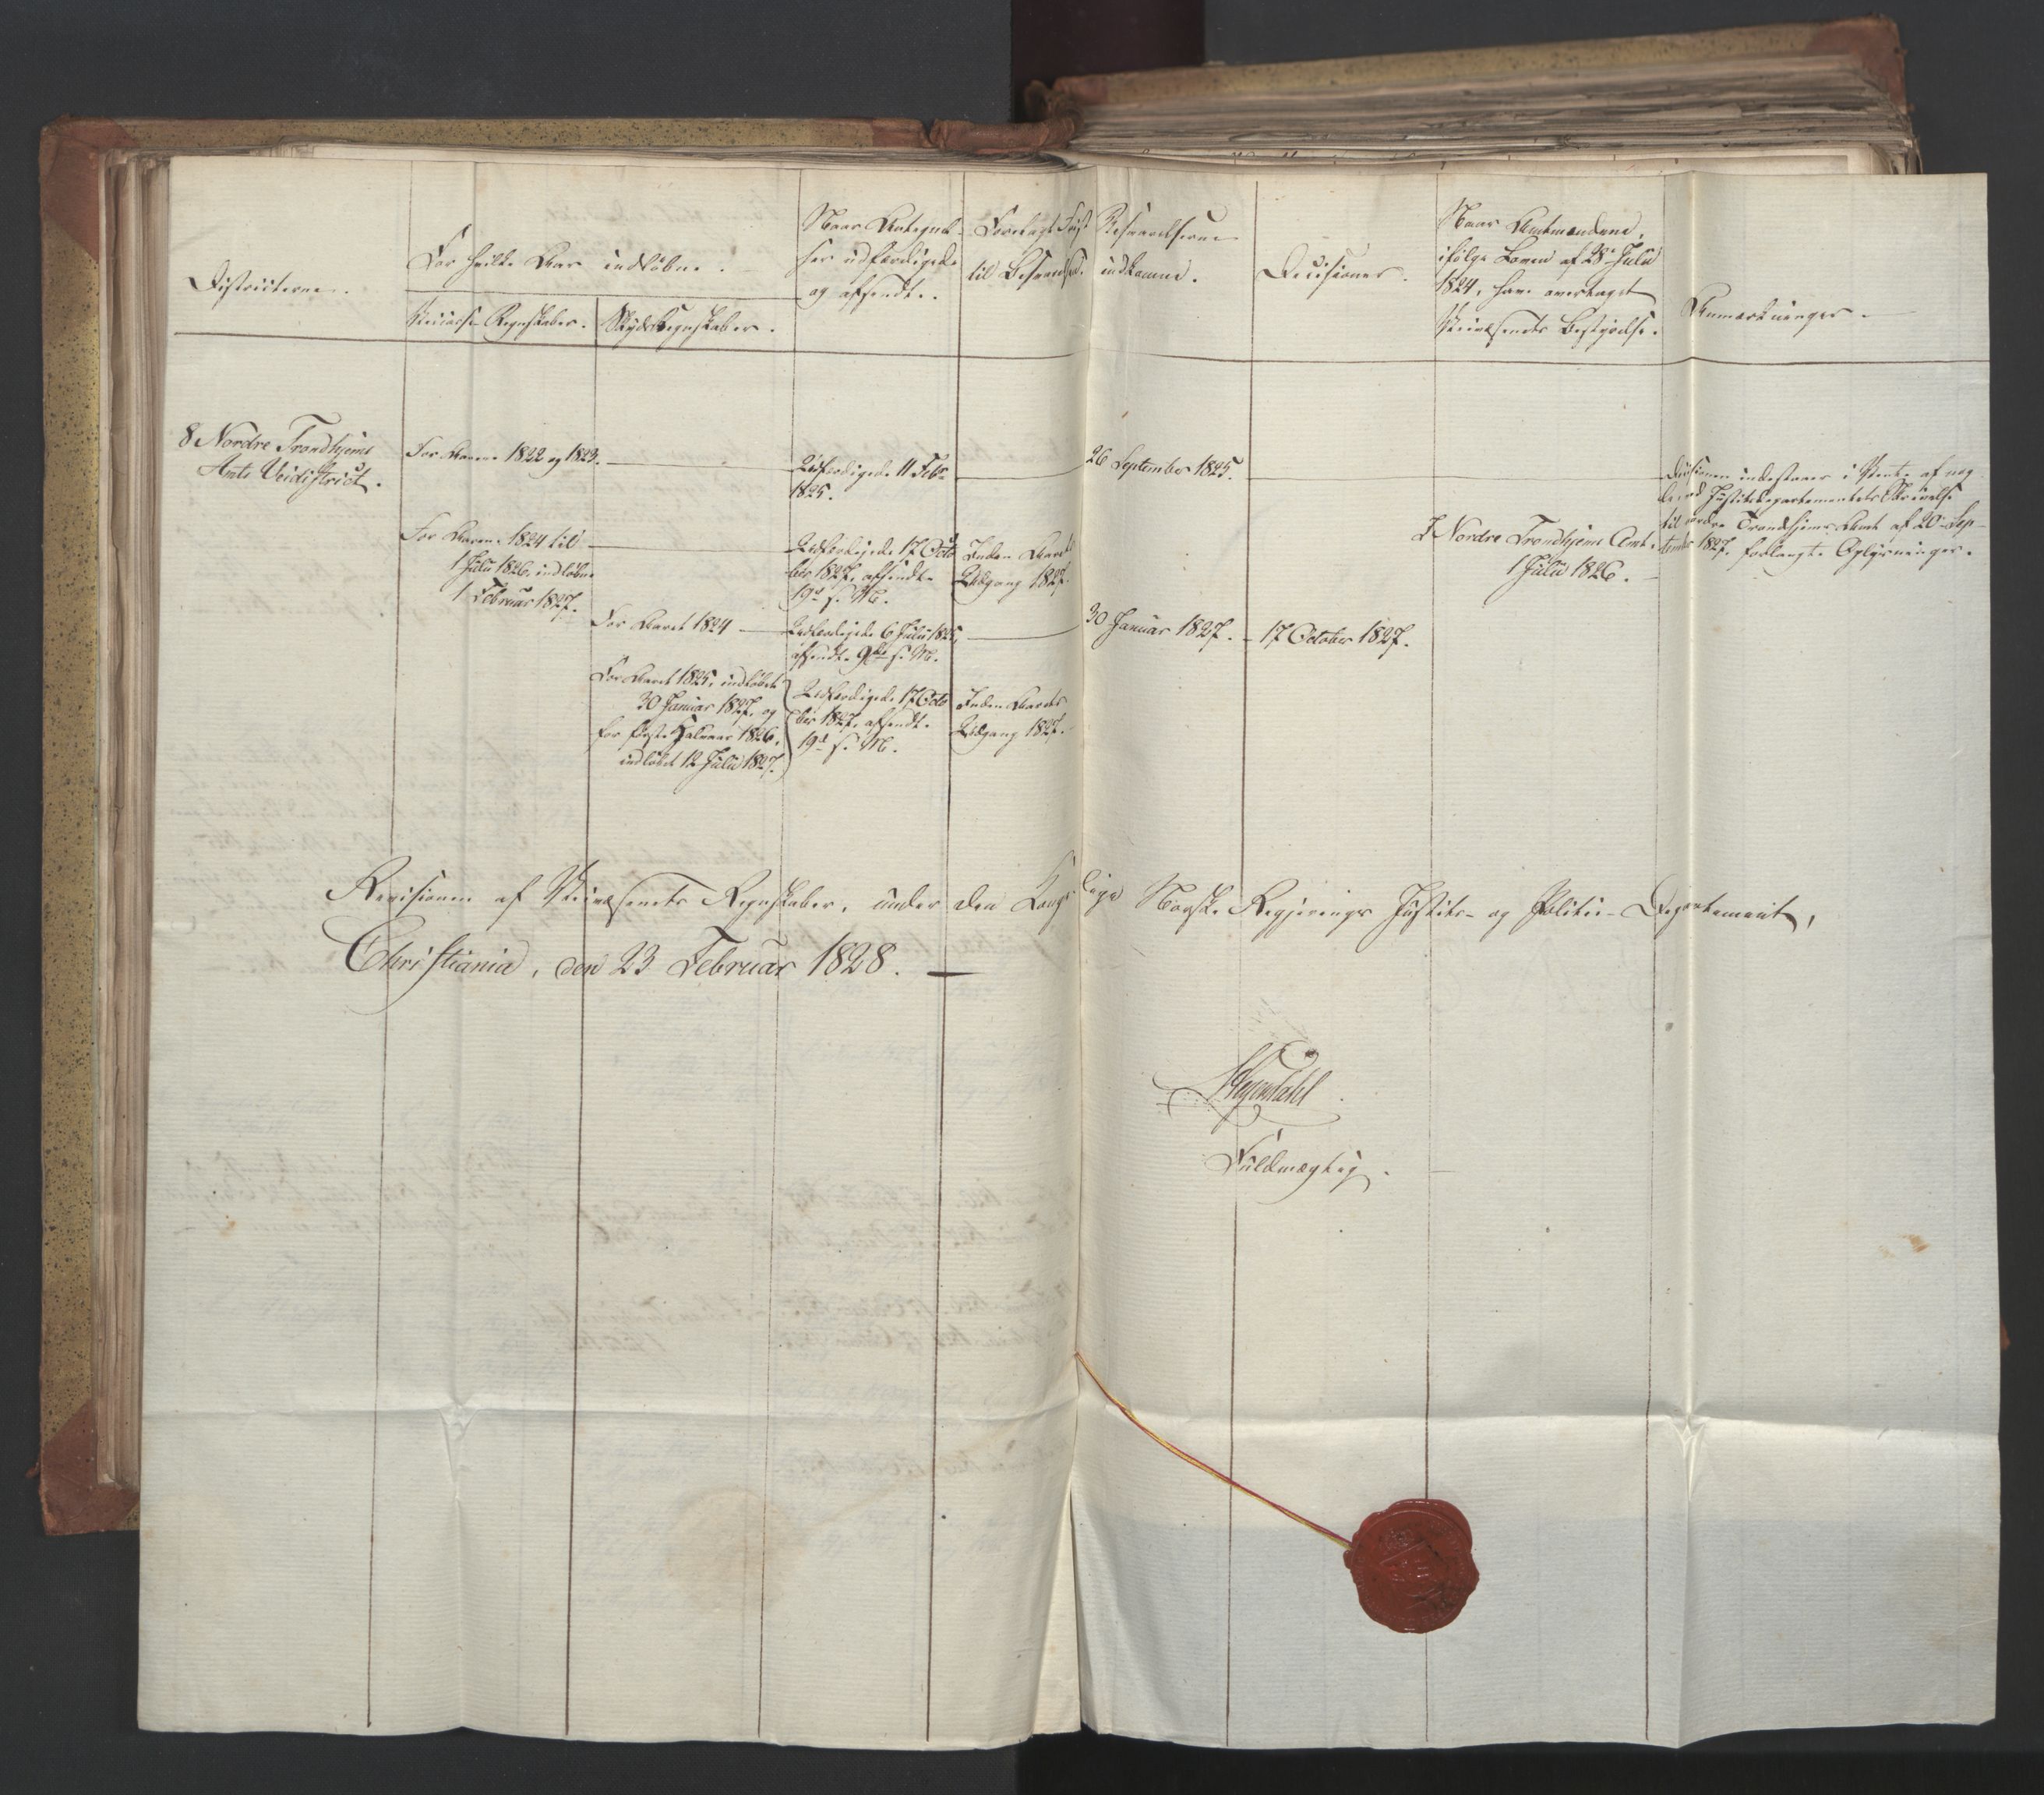 Districterne.
For hvilke Aar indløbne.
Veicasse-Regnskaber.
Skydsregnskaber.
Naar Antegnel-
ser udfærdigede
og afsendte.
Forelagt Frist
til Besvarelse.
Besvarelserne
indkomne.
Decisioner.
Naar Amtmændene,
ifølge Loven af 28 Julii
1824, have overtaget
Veivæsenets Bestyrelse.
Anmærkninger.
8 Nordre Trondhjems
Amts Veidistrict.
For Aarene 1822 og 1823.
Udfærdigede 11 Febr
1825.
26 September 1825.
Decisionen udestaaer i Vente af nog-
le ved Justitsdepartementets Skrivelse
til Nordre Trondhjems Amt af 20 Sep-
tember 1827 forlangte Oplysninger.
For Aarene 1824 til
1 Julii 1826, indløbne
1 Februar 1827.
Udfærdigede 17 Octo
ber 1827, afsendte
19 s. M.
Inden Aarets
Udgang 1827.
I Nordre Trondhjems Amt
1 Julii 1826.
For Aaret 1824
Udfærdigede 6 Julii 1825,
afsendte 9de s. M.
30 Januar 1827.
17 October 1827.
For Aaret 1825, indløbet
30 Januar 1827, og
for første Halvaar 1826,
indløbet 12 Julii 1827.
Udfærdigede 17 Octo
ber 1827, afsendte
19 s. M.
Inden Aarets
Udgang 1827.
Revisionen af Veivæsenets Regnskaber, under den Kongelige Norske Regjerings Justits- og Politie-Departement,
Christiania, den 23 Februar 1828.
Fuldmægtig.